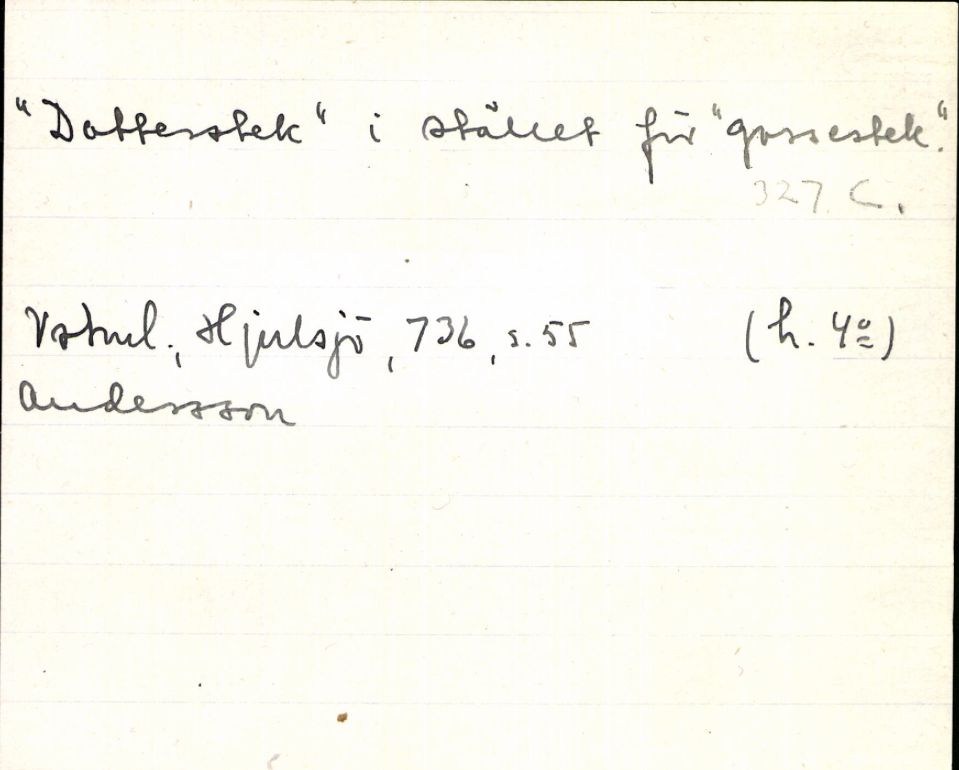 "Dotterstek" i stället för "gossestek".
327. C.
Vstml., Hjulsjö, 736, s. 55 (h. 4º)
Andersson